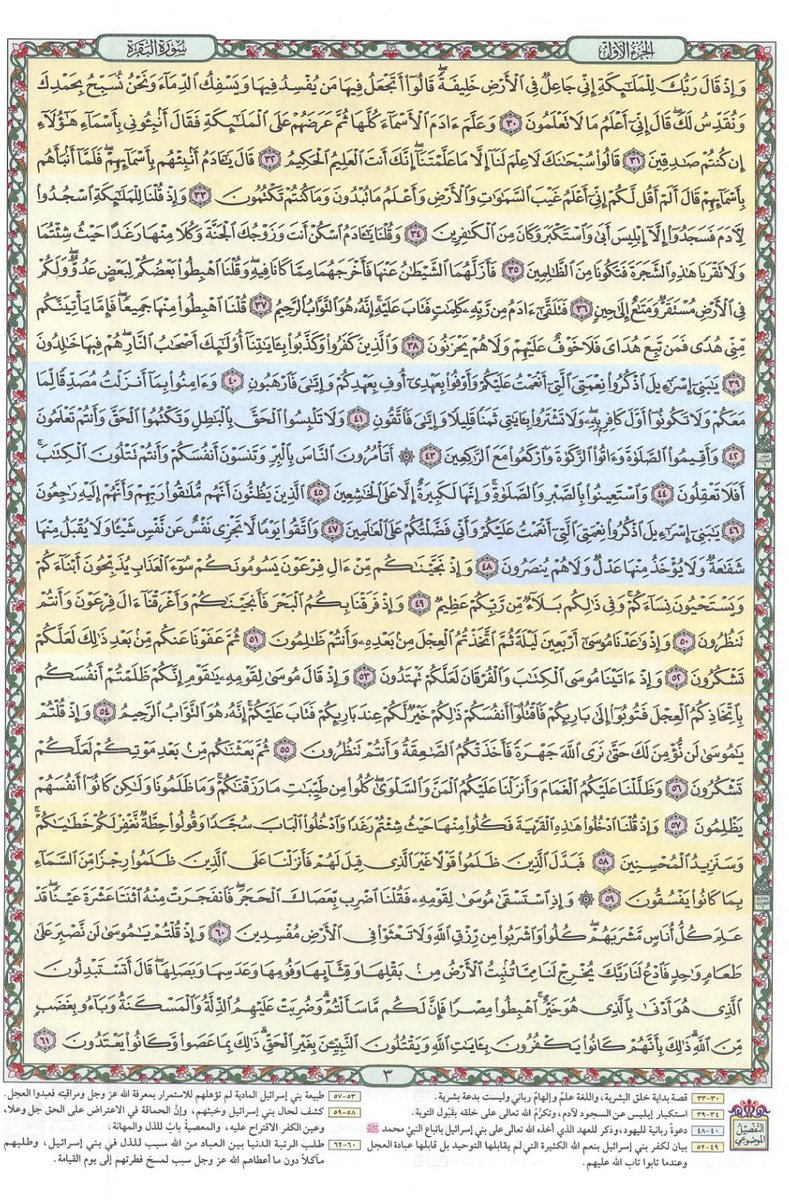 الجزء الأول
سورة البقرة
وَإِذْ قَالَ رَبُّكَ لِلْمَلَٰٓئِكَةِ إِنِّى جَاعِلٌ فِى ٱلْأَرْضِ خَلِيفَةً قَالُوٓا۟ أَتَجْعَلُ فِيهَا مَن يُفْسِدُ فِيهَا وَيَسْفِكُ ٱلدِّمَآءَ وَنَحْنُ نُسَبِّحُ بِحَمْدِكَ
وَنُقَدِّسُ لَكَ قَالَ إِنِّىٓ أَعْلَمُ مَا لَا تَعْلَمُونَ ٣٠ وَعَلَّمَ ءَادَمَ ٱلْأَسْمَآءَ كُلَّهَا ثُمَّ عَرَضَهُمْ عَلَى ٱلْمَلَٰٓئِكَةِ فَقَالَ أَنۢبِـُٔونِى بِأَسْمَآءِ هَٰٓؤُلَآءِ
إِن كُنتُمْ صَٰدِقِينَ ٣١ قَالُوا۟ سُبْحَٰنَكَ لَا عِلْمَ لَنَآ إِلَّا مَا عَلَّمْتَنَآ إِنَّكَ أَنتَ ٱلْعَلِيمُ ٱلْحَكِيمُ ٣٢ قَالَ يَٰٓـَٔادَمُ أَنۢبِئْهُم بِأَسْمَآئِهِمْ فَلَمَّآ أَنۢبَأَهُم
بِأَسْمَآئِهِمْ قَالَ أَلَمْ أَقُل لَّكُمْ إِنِّىٓ أَعْلَمُ غَيْبَ ٱلسَّمَٰوَٰتِ وَٱلْأَرْضِ وَأَعْلَمُ مَا تُبْدُونَ وَمَا كُنتُمْ تَكْتُمُونَ ٣٣ وَإِذْ قُلْنَا لِلْمَلَٰٓئِكَةِ ٱسْجُدُوا۟
لِـَٔادَمَ فَسَجَدُوٓا۟ إِلَّآ إِبْلِيسَ أَبَىٰ وَٱسْتَكْبَرَ وَكَانَ مِنَ ٱلْكَٰفِرِينَ ٣٤ وَقُلْنَا يَٰٓـَٔادَمُ ٱسْكُنْ أَنتَ وَزَوْجُكَ ٱلْجَنَّةَ وَكُلَا مِنْهَا رَغَدًا حَيْثُ شِئْتُمَا
وَلَا تَقْرَبَا هَٰذِهِ ٱلشَّجَرَةَ فَتَكُونَا مِنَ ٱلظَّٰلِمِينَ ٣٥ فَأَزَلَّهُمَا ٱلشَّيْطَٰنُ عَنْهَا فَأَخْرَجَهُمَا مِمَّا كَانَا فِيهِ وَقُلْنَا ٱهْبِطُوا۟ بَعْضُكُمْ لِبَعْضٍ عَدُوٌّ وَلَكُمْ
فِى ٱلْأَرْضِ مُسْتَقَرٌّ وَمَتَٰعٌ إِلَىٰ حِينٍ ٣٦ فَتَلَقَّىٰٓ ءَادَمُ مِن رَّبِّهِۦ كَلِمَٰتٍ فَتَابَ عَلَيْهِ إِنَّهُۥ هُوَ ٱلتَّوَّابُ ٱلرَّحِيمُ ٣٧ قُلْنَا ٱهْبِطُوا۟ مِنْهَا جَمِيعًا فَإِمَّا يَأْتِيَنَّكُم
مِّنِّى هُدًى فَمَن تَبِعَ هُدَاىَ فَلَا خَوْفٌ عَلَيْهِمْ وَلَا هُمْ يَحْزَنُونَ ٣٨ وَٱلَّذِينَ كَفَرُوا۟ وَكَذَّبُوا۟ بِـَٔايَٰتِنَآ أُو۟لَٰٓئِكَ أَصْحَٰبُ ٱلنَّارِ هُمْ فِيهَا خَٰلِدُونَ
٣٩ يَٰبَنِىٓ إِسْرَٰٓءِيلَ ٱذْكُرُوا۟ نِعْمَتِىَ ٱلَّتِىٓ أَنْعَمْتُ عَلَيْكُمْ وَأَوْفُوا۟ بِعَهْدِىٓ أُوفِ بِعَهْدِكُمْ وَإِيَّٰىَ فَٱرْهَبُونِ ٤٠ وَءَامِنُوا۟ بِمَآ أَنزَلْتُ مُصَدِّقًا لِّمَا
مَعَكُمْ وَلَا تَكُونُوٓا۟ أَوَّلَ كَافِرٍۭ بِهِۦ وَلَا تَشْتَرُوا۟ بِـَٔايَٰتِى ثَمَنًا قَلِيلًا وَإِيَّٰىَ فَٱتَّقُونِ ٤١ وَلَا تَلْبِسُوا۟ ٱلْحَقَّ بِٱلْبَٰطِلِ وَتَكْتُمُوا۟ ٱلْحَقَّ وَأَنتُمْ تَعْلَمُونَ
٤٢ وَأَقِيمُوا۟ ٱلصَّلَوٰةَ وَءَاتُوا۟ ٱلزَّكَوٰةَ وَٱرْكَعُوا۟ مَعَ ٱلرَّٰكِعِينَ ٤٣ ۞ أَتَأْمُرُونَ ٱلنَّاسَ بِٱلْبِرِّ وَتَنسَوْنَ أَنفُسَكُمْ وَأَنتُمْ تَتْلُونَ ٱلْكِتَٰبَ
أَفَلَا تَعْقِلُونَ ٤٤ وَٱسْتَعِينُوا۟ بِٱلصَّبْرِ وَٱلصَّلَوٰةِ وَإِنَّهَا لَكَبِيرَةٌ إِلَّا عَلَى ٱلْخَٰشِعِينَ ٤٥ ٱلَّذِينَ يَظُنُّونَ أَنَّهُم مُّلَٰقُوا۟ رَبِّهِمْ وَأَنَّهُمْ إِلَيْهِ رَٰجِعُونَ
٤٦ يَٰبَنِىٓ إِسْرَٰٓءِيلَ ٱذْكُرُوا۟ نِعْمَتِىَ ٱلَّتِىٓ أَنْعَمْتُ عَلَيْكُمْ وَأَنِّى فَضَّلْتُكُمْ عَلَى ٱلْعَٰلَمِينَ ٤٧ وَٱتَّقُوا۟ يَوْمًا لَّا تَجْزِى نَفْسٌ عَن نَّفْسٍ شَيْـًٔا وَلَا يُقْبَلُ مِنْهَا
شَفَٰعَةٌ وَلَا يُؤْخَذُ مِنْهَا عَدْلٌ وَلَا هُمْ يُنصَرُونَ ٤٨ وَإِذْ نَجَّيْنَٰكُم مِّنْ ءَالِ فِرْعَوْنَ يَسُومُونَكُمْ سُوٓءَ ٱلْعَذَابِ يُذَبِّحُونَ أَبْنَآءَكُمْ
وَيَسْتَحْيُونَ نِسَآءَكُمْ وَفِى ذَٰلِكُم بَلَآءٌ مِّن رَّبِّكُمْ عَظِيمٌ ٤٩ وَإِذْ فَرَقْنَا بِكُمُ ٱلْبَحْرَ فَأَنجَيْنَٰكُمْ وَأَغْرَقْنَآ ءَالَ فِرْعَوْنَ وَأَنتُمْ
تَنظُرُونَ ٥٠ وَإِذْ وَٰعَدْنَا مُوسَىٰٓ أَرْبَعِينَ لَيْلَةً ثُمَّ ٱتَّخَذْتُمُ ٱلْعِجْلَ مِنۢ بَعْدِهِۦ وَأَنتُمْ ظَٰلِمُونَ ٥١ ثُمَّ عَفَوْنَا عَنكُم مِّنۢ بَعْدِ ذَٰلِكَ لَعَلَّكُمْ
تَشْكُرُونَ ٥٢ وَإِذْ ءَاتَيْنَا مُوسَى ٱلْكِتَٰبَ وَٱلْفُرْقَانَ لَعَلَّكُمْ تَهْتَدُونَ ٥٣ وَإِذْ قَالَ مُوسَىٰ لِقَوْمِهِۦ يَٰقَوْمِ إِنَّكُمْ ظَلَمْتُمْ أَنفُسَكُم
بِٱتِّخَاذِكُمُ ٱلْعِجْلَ فَتُوبُوٓا۟ إِلَىٰ بَارِئِكُمْ فَٱقْتُلُوٓا۟ أَنفُسَكُمْ ذَٰلِكُمْ خَيْرٌ لَّكُمْ عِندَ بَارِئِكُمْ فَتَابَ عَلَيْكُمْ إِنَّهُۥ هُوَ ٱلتَّوَّابُ ٱلرَّحِيمُ ٥٤ وَإِذْ قُلْتُمْ
يَٰمُوسَىٰ لَن نُّؤْمِنَ لَكَ حَتَّىٰ نَرَى ٱللَّهَ جَهْرَةً فَأَخَذَتْكُمُ ٱلصَّٰعِقَةُ وَأَنتُمْ تَنظُرُونَ ٥٥ ثُمَّ بَعَثْنَٰكُم مِّنۢ بَعْدِ مَوْتِكُمْ لَعَلَّكُمْ
تَشْكُرُونَ ٥٦ وَظَلَّلْنَا عَلَيْكُمُ ٱلْغَمَامَ وَأَنزَلْنَا عَلَيْكُمُ ٱلْمَنَّ وَٱلسَّلْوَىٰ كُلُوا۟ مِن طَيِّبَٰتِ مَا رَزَقْنَٰكُمْ وَمَا ظَلَمُونَا وَلَٰكِن كَانُوٓا۟ أَنفُسَهُمْ
يَظْلِمُونَ ٥٧ وَإِذْ قُلْنَا ٱدْخُلُوا۟ هَٰذِهِ ٱلْقَرْيَةَ فَكُلُوا۟ مِنْهَا حَيْثُ شِئْتُمْ رَغَدًا وَٱدْخُلُوا۟ ٱلْبَابَ سُجَّدًا وَقُولُوا۟ حِطَّةٌ نَّغْفِرْ لَكُمْ خَطَٰيَٰكُمْ
وَسَنَزِيدُ ٱلْمُحْسِنِينَ ٥٨ فَبَدَّلَ ٱلَّذِينَ ظَلَمُوا۟ قَوْلًا غَيْرَ ٱلَّذِى قِيلَ لَهُمْ فَأَنزَلْنَا عَلَى ٱلَّذِينَ ظَلَمُوا۟ رِجْزًا مِّنَ ٱلسَّمَآءِ
بِمَا كَانُوا۟ يَفْسُقُونَ ٥٩ ۞ وَإِذِ ٱسْتَسْقَىٰ مُوسَىٰ لِقَوْمِهِۦ فَقُلْنَا ٱضْرِب بِّعَصَاكَ ٱلْحَجَرَ فَٱنفَجَرَتْ مِنْهُ ٱثْنَتَا عَشْرَةَ عَيْنًا قَدْ
عَلِمَ كُلُّ أُنَاسٍ مَّشْرَبَهُمْ كُلُوا۟ وَٱشْرَبُوا۟ مِن رِّزْقِ ٱللَّهِ وَلَا تَعْثَوْا۟ فِى ٱلْأَرْضِ مُفْسِدِينَ ٦٠ وَإِذْ قُلْتُمْ يَٰمُوسَىٰ لَن نَّصْبِرَ عَلَىٰ
طَعَامٍ وَٰحِدٍ فَٱدْعُ لَنَا رَبَّكَ يُخْرِجْ لَنَا مِمَّا تُنۢبِتُ ٱلْأَرْضُ مِنۢ بَقْلِهَا وَقِثَّآئِهَا وَفُومِهَا وَعَدَسِهَا وَبَصَلِهَا قَالَ أَتَسْتَبْدِلُونَ
ٱلَّذِى هُوَ أَدْنَىٰ بِٱلَّذِى هُوَ خَيْرٌ ٱهْبِطُوا۟ مِصْرًا فَإِنَّ لَكُم مَّا سَأَلْتُمْ وَضُرِبَتْ عَلَيْهِمُ ٱلذِّلَّةُ وَٱلْمَسْكَنَةُ وَبَآءُو بِغَضَبٍ
مِّنَ ٱللَّهِ ذَٰلِكَ بِأَنَّهُمْ كَانُوا۟ يَكْفُرُونَ بِـَٔايَٰتِ ٱللَّهِ وَيَقْتُلُونَ ٱلنَّبِيِّـۧنَ بِغَيْرِ ٱلْحَقِّ ذَٰلِكَ بِمَا عَصَوا۟ وَّكَانُوا۟ يَعْتَدُونَ ٦١
٣
التفصيل الموضوعي
٣٠-٣٣ قصة بداية خلق البشرية، واللغة علمٌ وإلهامٌ رباني وليست بدعة بشرية.
٣٤-٣٩ استكبار إبليس عن السجود لآدم، وتكرُّمُ الله تعالى على خلقه بقبُول التوبة.
٤٠-٤٨ دعوةٌ ربانية لليهود، وذكر للعهد الذي أخذه الله تعالى على بني إسرائيل باتباع النبيِّ محمد ﷺ
٤٩-٥٢ بيان لكفر بني إسرائيل بنعم الله الكثيرة التي لم يقابلها التوحيد بل قابلها عبادة العجل
وعندما تابوا تاب الله عليهم.
٥٣-٥٧ طبيعة بني إسرائيل المادية لم تؤهلهم للاستمرار بمعرفة الله عز وجل ومراقبته فعبدوا العجل.
٥٨-٥٩ كشف لحال بني إسرائيل وخبثهم، وإنَّ الحماقة في الاعتراض على الحق جل وعلا،
وعين الكفر الاقتراح عليه، والمعصيةُ بابٌ للذل والمهانة.
٦٠-٦٢ طلب الرتبة الدنيا بين العباد من الله سبب للذل في بني إسرائيل، وطلبهم
مأكلاً دون ما أعطاهم الله عز وجل سبب لمسخ فطرتهم إلى يوم القيامة.